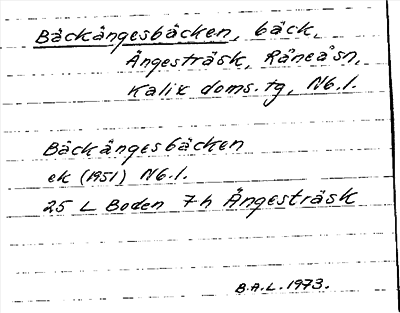 Bäckängesbäcken, bäck,
Ängesträsk, Råneå sn,
Kalix doms. tg, Nb. l.
Bäckängesbäcken
ek (1951) Nb. l.
25 L Boden 7h Ängesträsk
B.A.L. 1973.